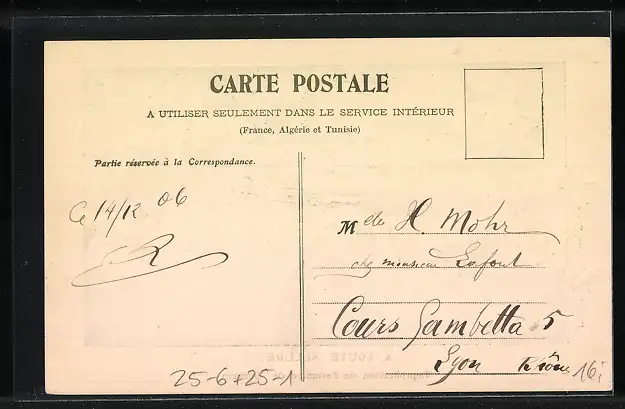 CARTE POSTALE
A UTILISER SEULEMENT DANS LE SERVICE INTÉRIEUR
(France, Algérie et Tunisie)
Partie réservée à la Correspondance.
Ce 14/12 06
R
Mde H. Mohr
chez monsieur Lafont
Cours Gambetta 5
Lyon Rhône
25-6+25-1
16